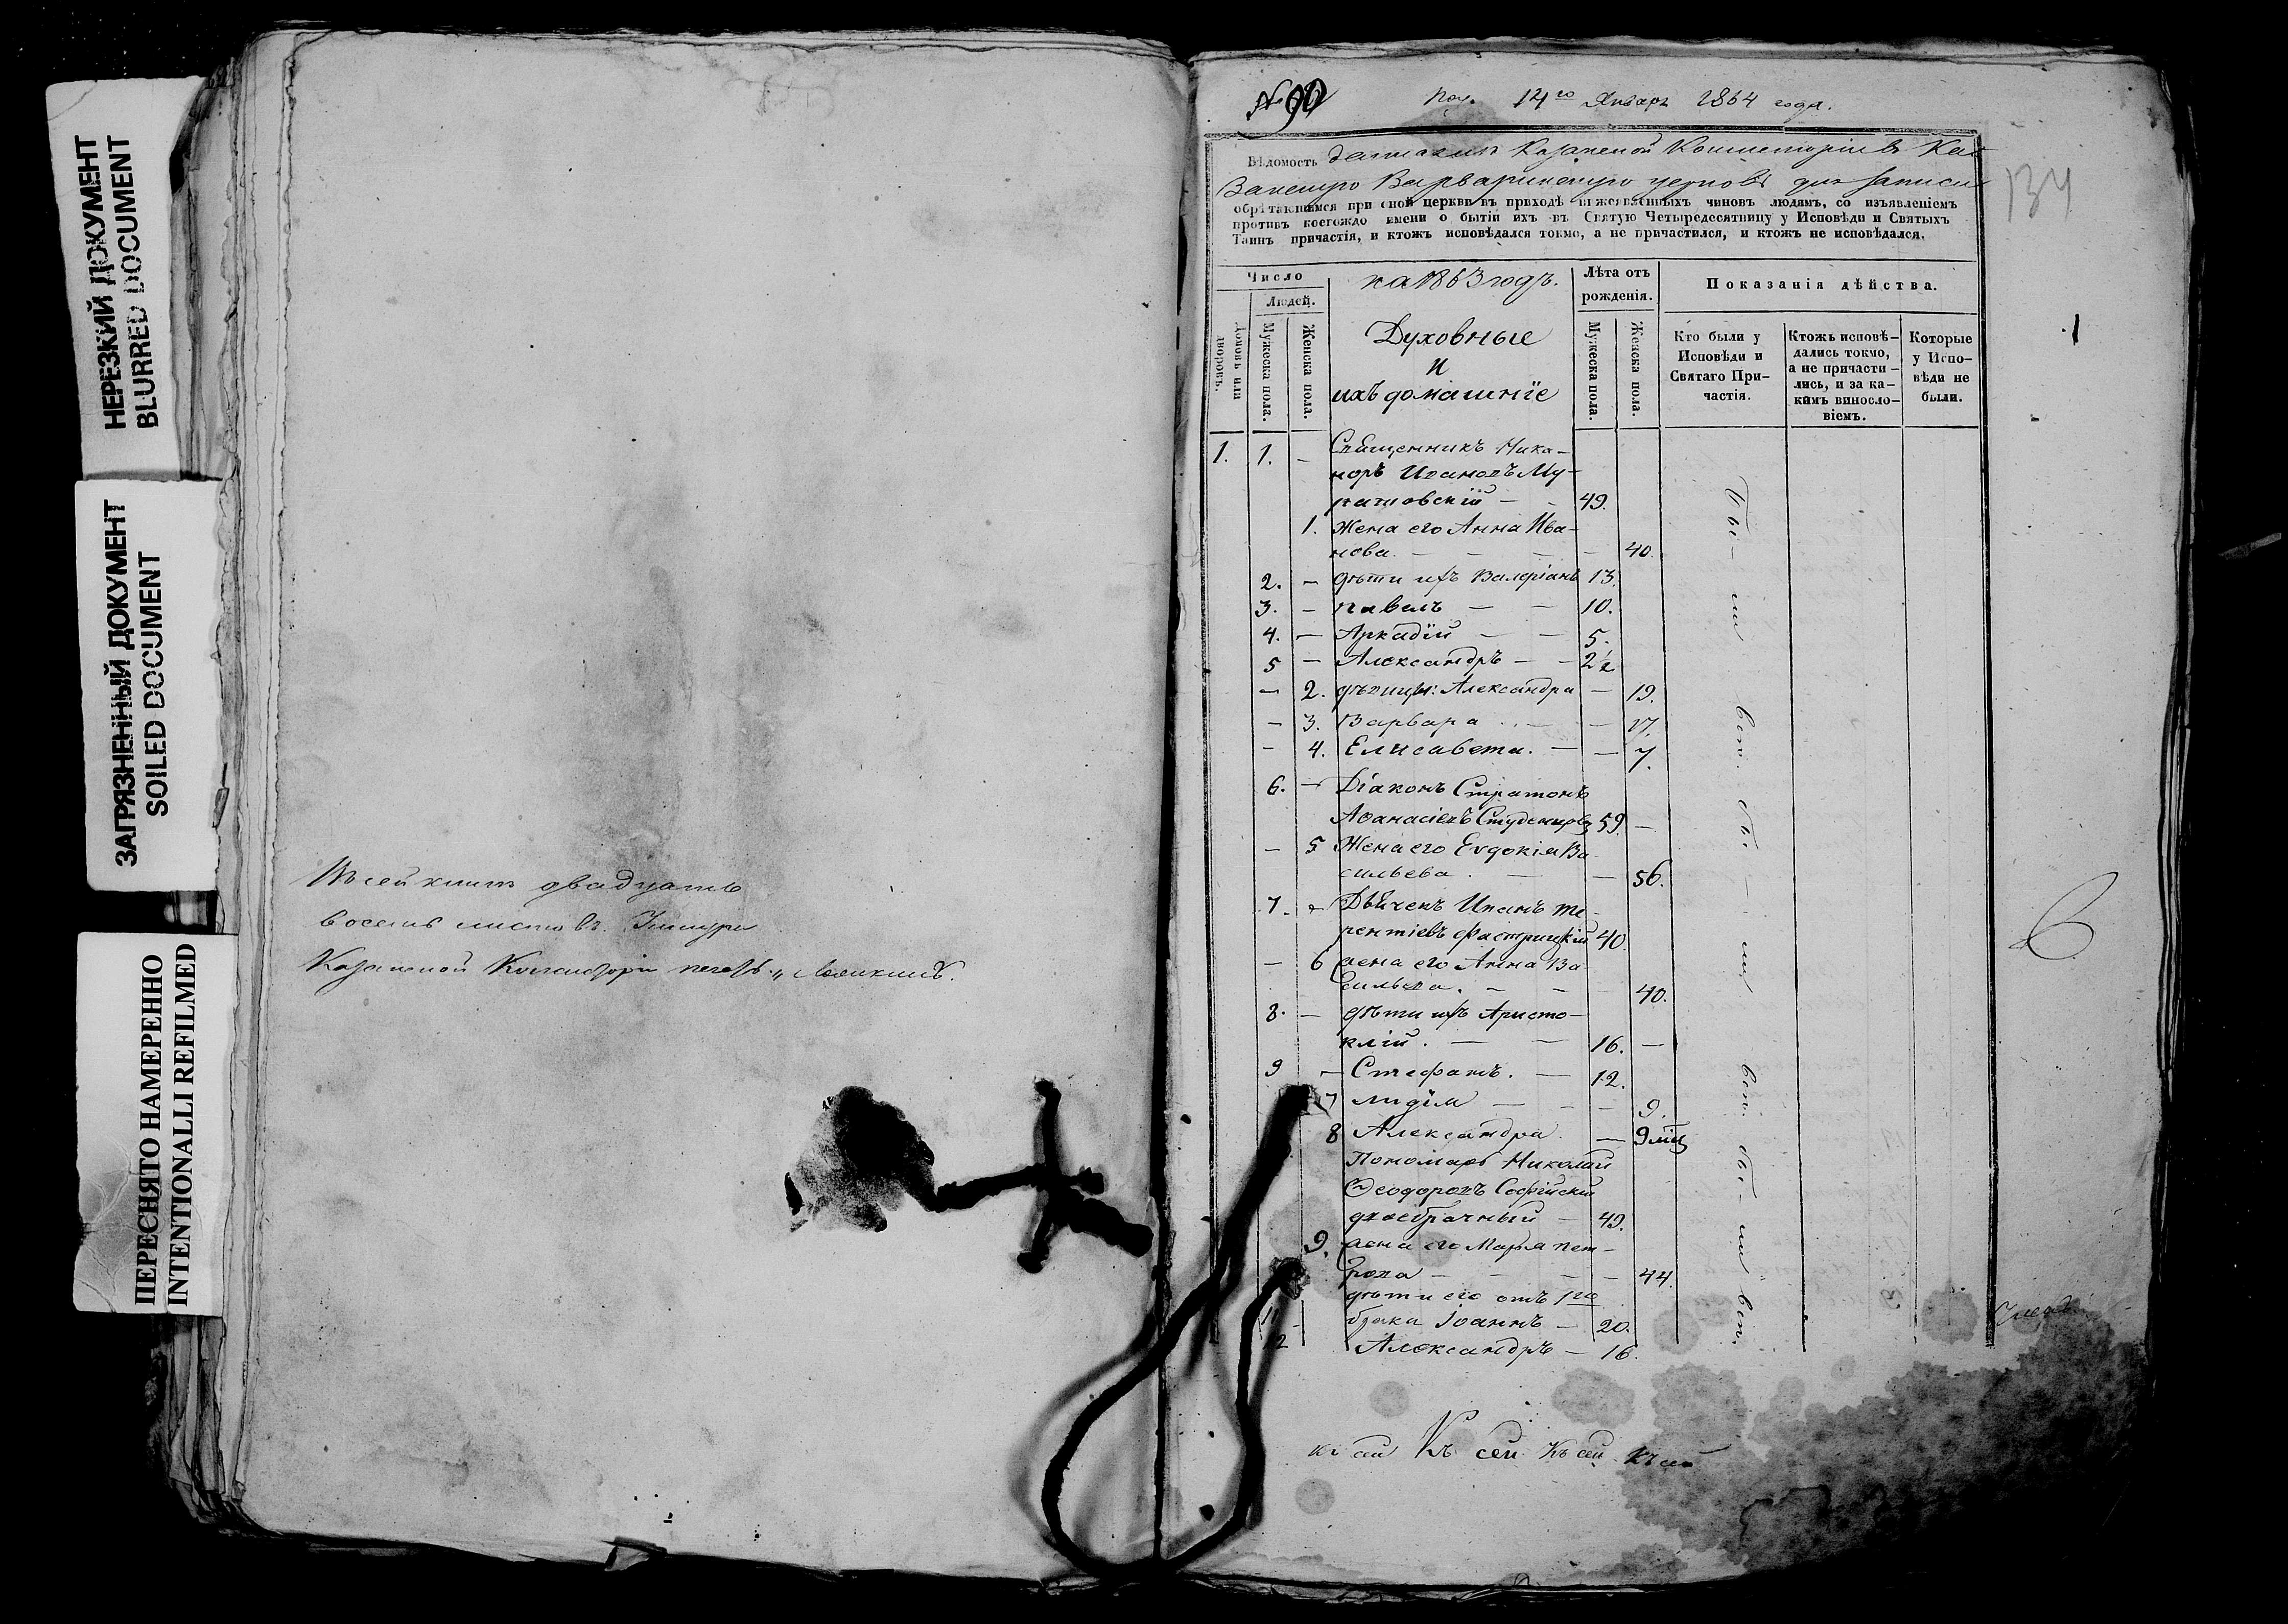 НЕРЕЗКИЙ ДОКУМЕНТ
BLURRED DOCUMENT
ЗАГРЯЗНЕННЫЙ ДОКУМЕНТ
SOILED DOCUMENT
ПЕРЕСНЯТО НАМЕРЕННО
INTENTIONALLI REFILMED
Въ сей книгѣ двадцать
восемь листовъ.
Казанской
№ 90
Пол. 14го Январ 1864 года.
134
Вѣдомость данная изъ Казанской Консисторіи въ Ка-
занскую Варваринскую церковь для записи
обрѣтающимся при оной церкви въ приходѣ нижеявленныхъ чиновъ людямъ, со изъявленіемъ
противъ коегождо имени о бытіи ихъ въ Святую Четыредесятницу у Исповѣди и Святыхъ
Таинъ причастія, и ктожъ исповѣдался токмо, а не причастился, и ктожъ не исповѣдался.
Число
Людей.
Домовъ или дворовъ.
Мужеска пола.
Женска пола.
на 1863 годъ.
Духовные
и
ихъ домашніе
Лѣта отъ рожденія.
Мужеска пола.
Женска пола.
Показанія дѣйства.
Кто были у Исповѣди и Святаго При-частія.
Ктожъ исповѣ-дались токмо, а не причасти-лись, и за ка-кимъ виносло-віемъ.
Которые у Испо-вѣди не были.
1
1. 1. – Священникъ Ника-
норъ Ивановъ Му-
ратовскій – – 49.
1. Жена его Анна Ива-
нова. – – – – 40.
2. – дѣти ихъ Валеріанъ 13.
3. – Павелъ – – 10.
4. – Аркадій – – 5.
5 – Александръ – – 2½
– 2. дѣвицы: Александра – 19.
– 3. Варвара – – 17.
– 4. Елисавета. – – 7.
6. – Діаконъ Стратонъ
Аѳанасіевъ 59. –
– 5 Жена его Евдокія Ва-
сильева. – – 56.
7. – Дьячекъ Иванъ Те-
рентіевъ 40.
– 6 жена его Анна Ва-
сильева. – – – 40.
8. – дѣти ихъ Аристо-
клій. – – 16. –
9 – Стефанъ. – 12.
7 Лидія – – – 9.
8 Александра. – 9 мц
Пономарь Николай
Ѳеодоровъ Софійскій
двоебрачный – 49.
9. жена его Марья Пет-
рова – – – – 44.
дѣти его отъ 1го
11 – брака Іоаннъ – 20.
12 Александръ – 16.
Бы-ли
всп.
бы-ли
всп.
бы-ли
всп.
къ сей Къ сей Къ сей Къ сей